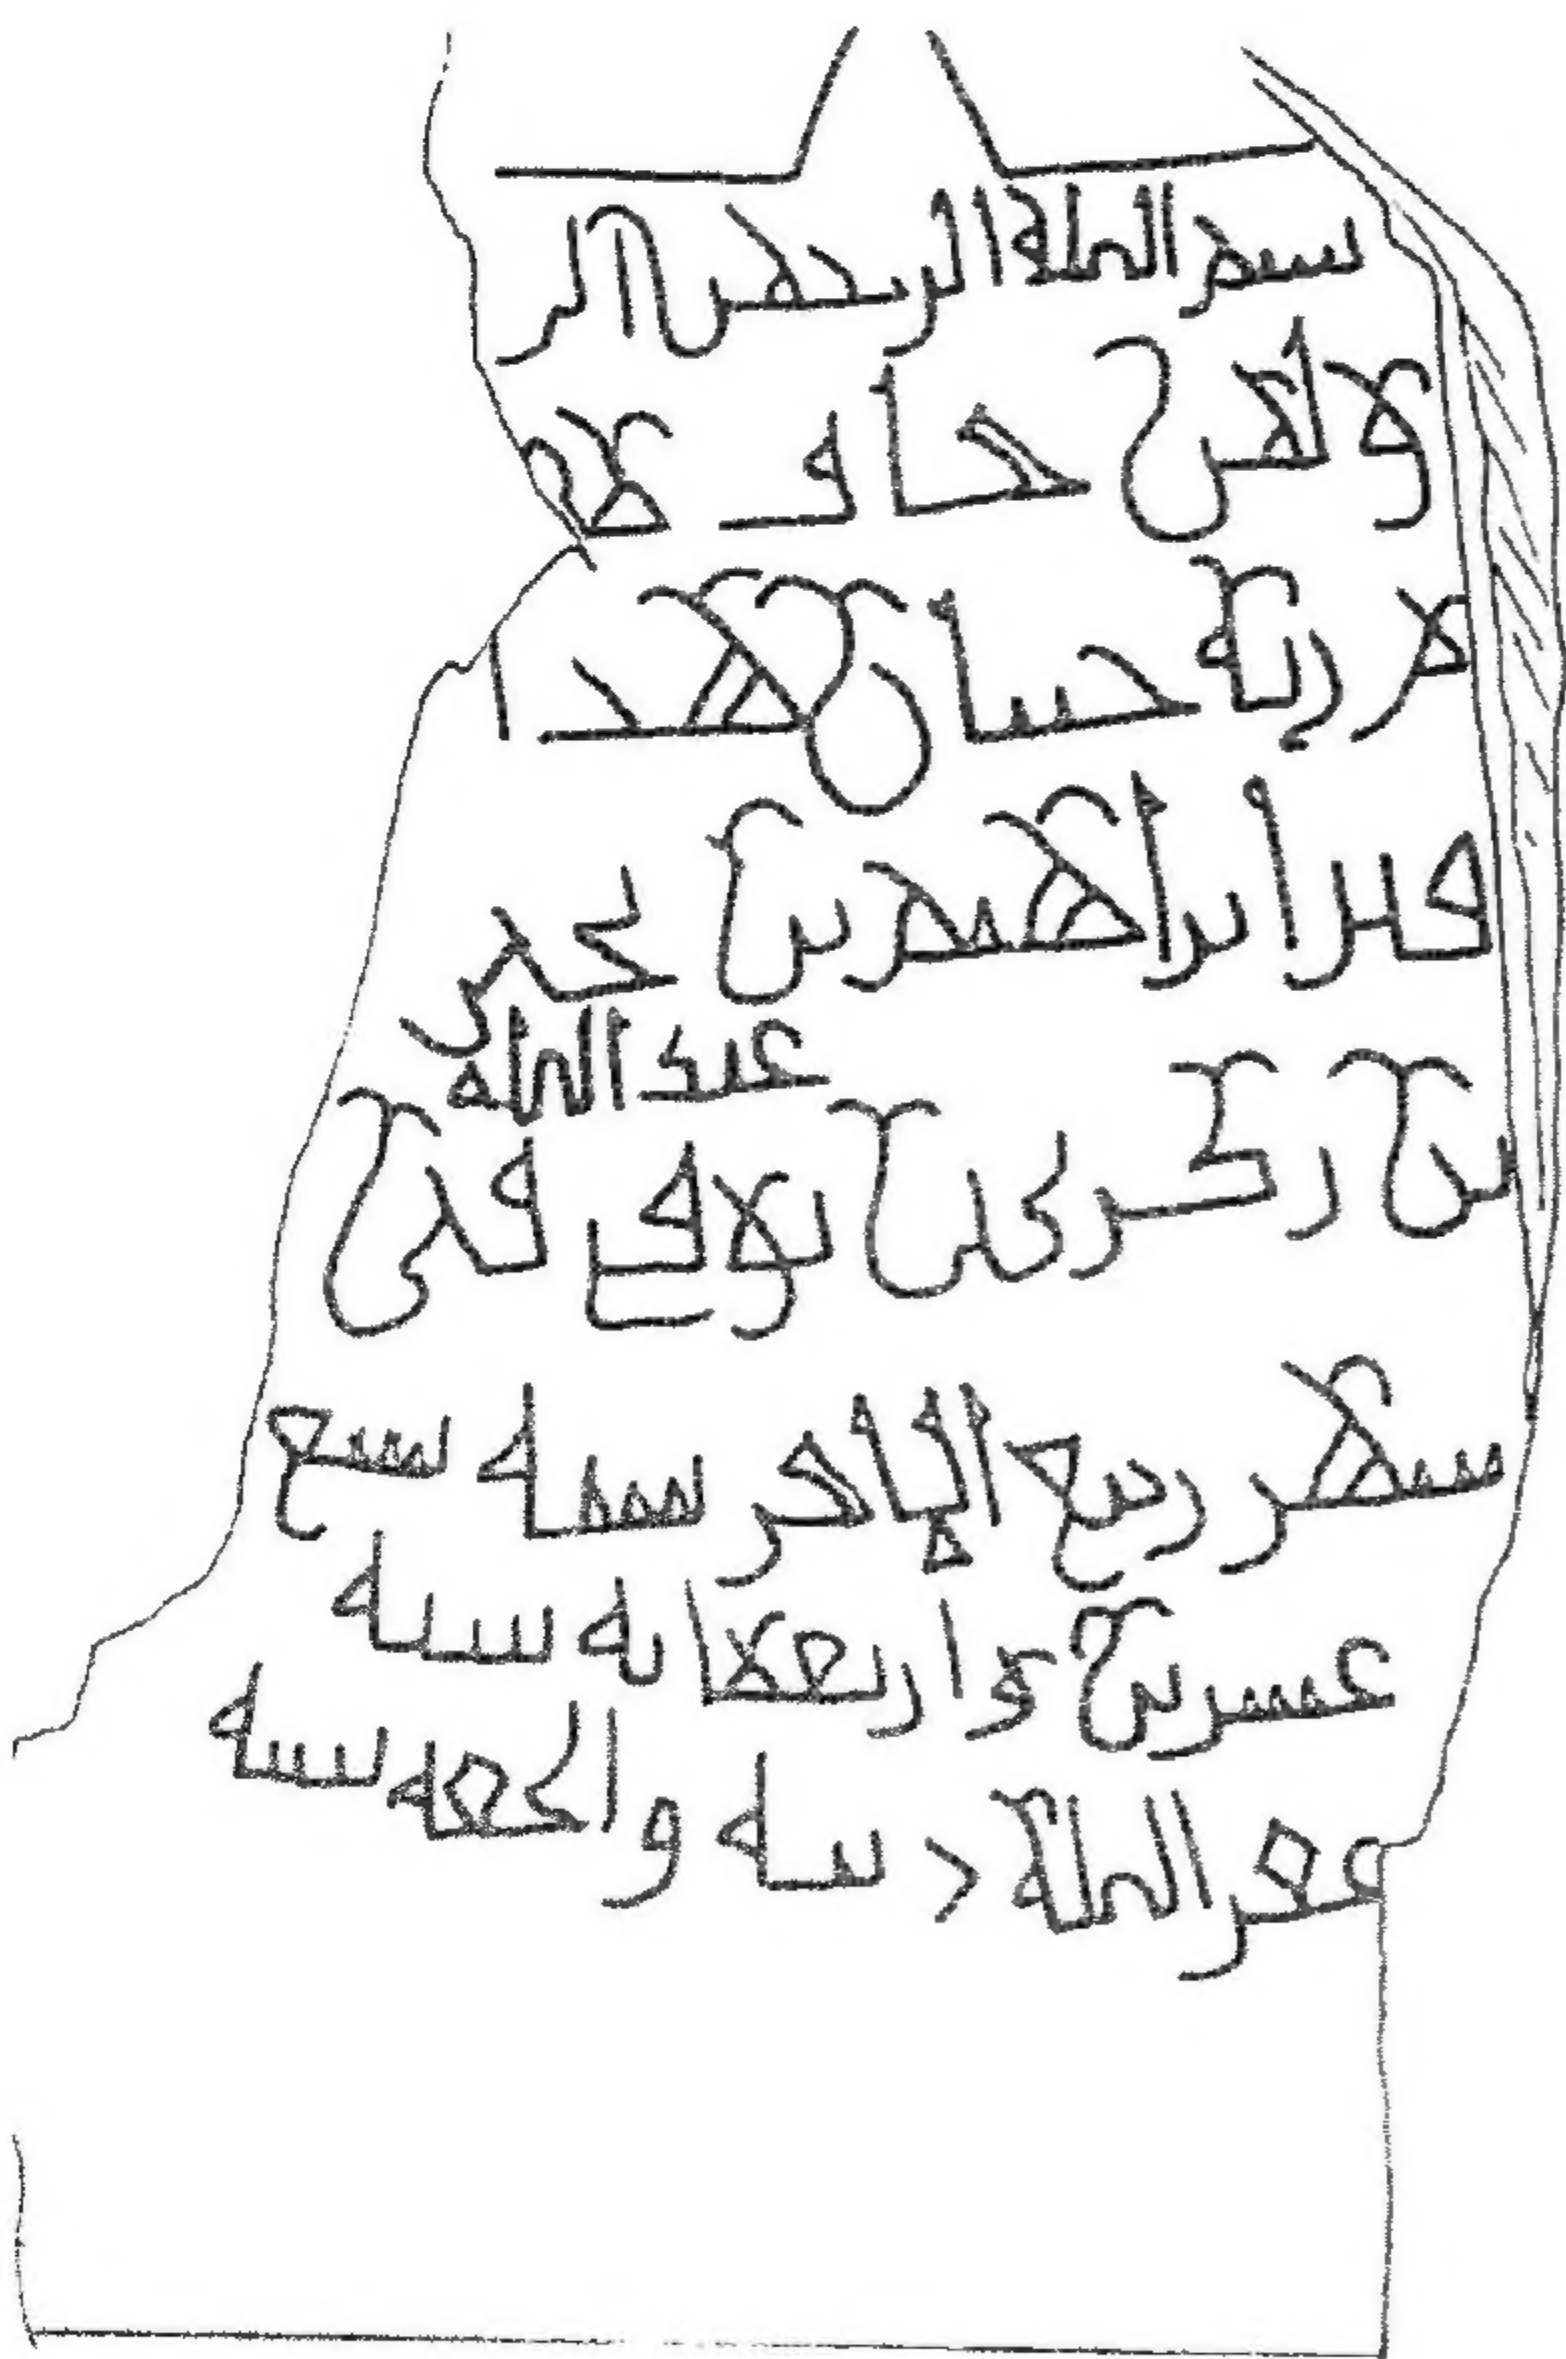 بسم الله الرحمن الر
ولمن خاف مقا
م ربه جنتان هذا
قبر ابراهيم بن يحيى
عبد الله
بن زكري بن توفي في
شهر ربيع الاخر سنة سبع
عشرين و اربعماية سنة
غفر الله ذنبه والحقه بنبيه